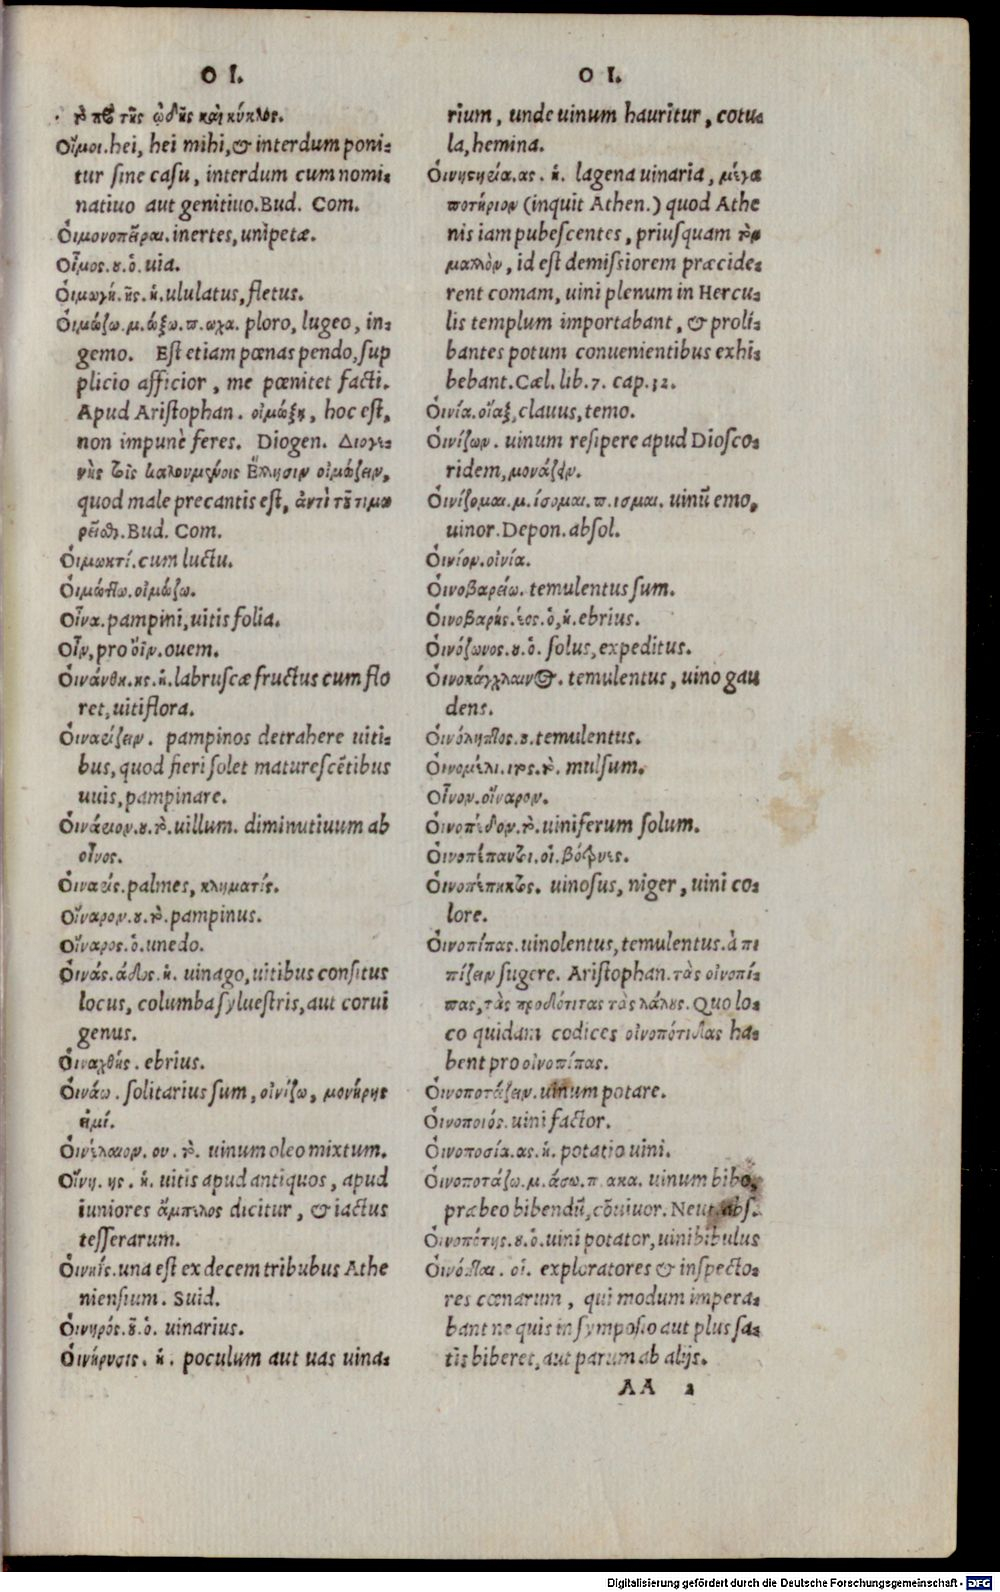 O I.
τὸ τῆς ᾠδῆς καὶ κύκλος.
Οἴμοι.hei, hei mihi,& interdum poni-
tur sine casu, interdum cum nomi-
natiuo aut genitiuo.Bud. Com.
Οἰμονοπεῖραι.inertes, unipetæ.
Οἶμος.ου.ὁ.uia.
Οἰμωγή.ῆς.ἡ.ululatus, fletus.
Οἰμώζω.μ.ώξω.π.ωχα. ploro, lugeo, in-
gemo. Est etiam pœnas pendo, sup
plicio afficior, me pœnitet facti.
Apud Aristophan. οἰμώξῃ, hoc est,
non impunè feres. Diogen. Διογέ-
νης τοῖς καλουμένοις Ἕλλησιν οἰμώζειν,
quod male precantis est, ἀντὶ τοῦ τιμω
ρεῖσθαι.Bud. Com.
Οἰμωκτί.cum luctu.
Οἰμώττω.οἰμώζω.
Οἶνα.pampini, uitis folia.
Οἶν, pro ὄϊν.ouem.
Οἰνάνθη.ης.ἡ.labruscæ fructus cum flo
ret, uitiflora.
Οἰναρίζειν. pampinos detrahere uiti-
bus, quod fieri solet maturescẽtibus
uuis, pampinare.
Οἰνάριον.ου.τὸ.uillum. diminutiuum ab
οἶνος.
Οἰναρίς.palmes, κληματίς.
Οἴναρον.ου.τὸ.pampinus.
Οἴναρος.ὁ.unedo.
Οἰνάς.άδος.ἡ. uinago, uitibus consitus
locus, columba syluestris, aut corui
genus.
Οἰναχθής. ebrius.
Οἰνάω. solitarius sum, οἰνίζω, μονήρης
εἰμί.
Οἰνέλαιον. ου. τὸ. uinum oleo mixtum.
Οἴνη. ης. ἡ. uitis apud antiquos, apud
iuniores ἄμπελος dicitur, & iactus
tesserarum.
Οἰνηΐς.una est ex decem tribubus Athe
niensium. Suid.
Οἰνηρός.οῦ.ὁ. uinarius.
Οἰνήρυσις. ἡ. poculum aut uas uina-
O I.
rium, unde uinum hauritur, cotu-
la, hemina.
Οἰνιστηρία.ας. ἡ. lagena uinaria, μέγα
ποτήριον (inquit Athen.) quod Athe
nis iam pubescentes, priusquam τὸν
μαλλὸν, id est demissiorem præcide-
rent comam, uini plenum in Hercu-
lis templum importabant, & proli-
bantes potum conuenientibus exhi-
bebant.Cæl. lib. 7. cap.32.
Οἰνία.οἴαξ, clauus, temo.
Οἰνίζων. uinum resipere apud Diosco-
ridem, μονάζειν.
Οἰνίζομαι.μ.ίσομαι.π.ισμαι. uinũ emo,
uinor.Depon.absol.
Οἰνίον.οἰνία.
Οἰνοβαρείω. temulentus sum.
Οἰνοβαρής.έος.ὁ, ἡ.ebrius.
Οἰνόζωνος.ου.ὁ. solus, expeditus.
Οἰνοκάγχλαινος. temulentus, uino gau
dens.
Οἰνόληπτος.ου.temulentus.
Οἰνομέλι.ιτος.τὸ. mulsum.
Οἶνον.οἴναρον.
Οἰνοπέδον.τὸ.uiniferum solum.
Οἰνοπέπαντοι.οἱ.βότρυες.
Οἰνοπέπηκτος. uinosus, niger, uini co-
lore.
Οἰνοπίπας.uinolentus, temulentus.à πι
πίζειν sugere. Aristophan.τὰς οἰνοπί-
πας, τὰς προδότιτας τὰς λάλους. Quo lo-
co quidam codices οἰνοπότιδας ha-
bent pro οἰνοπίπας.
Οἰνοποτάζειν.uinum potare.
Οἰνοποιός.uini factor.
Οἰνοποσία.ας.ἡ. potatio uini.
Οἰνοποτάζω.μ.άσω.π.ακα. uinum bibo,
præbeo bibendũ, cõuiuor. Neut.abs.
Οἰνοπότης.ου.ὁ.uini potator, uinibibulus
Οἰνόπται. οἱ. exploratores & inspecto-
res cœnarum, qui modum impera-
bant ne quis in symposio aut plus sa-
tis biberet, aut parum ab alijs.
AA 2
Digitalisierung gefördert durch die Deutsche Forschungsgemeinschaft - DFG